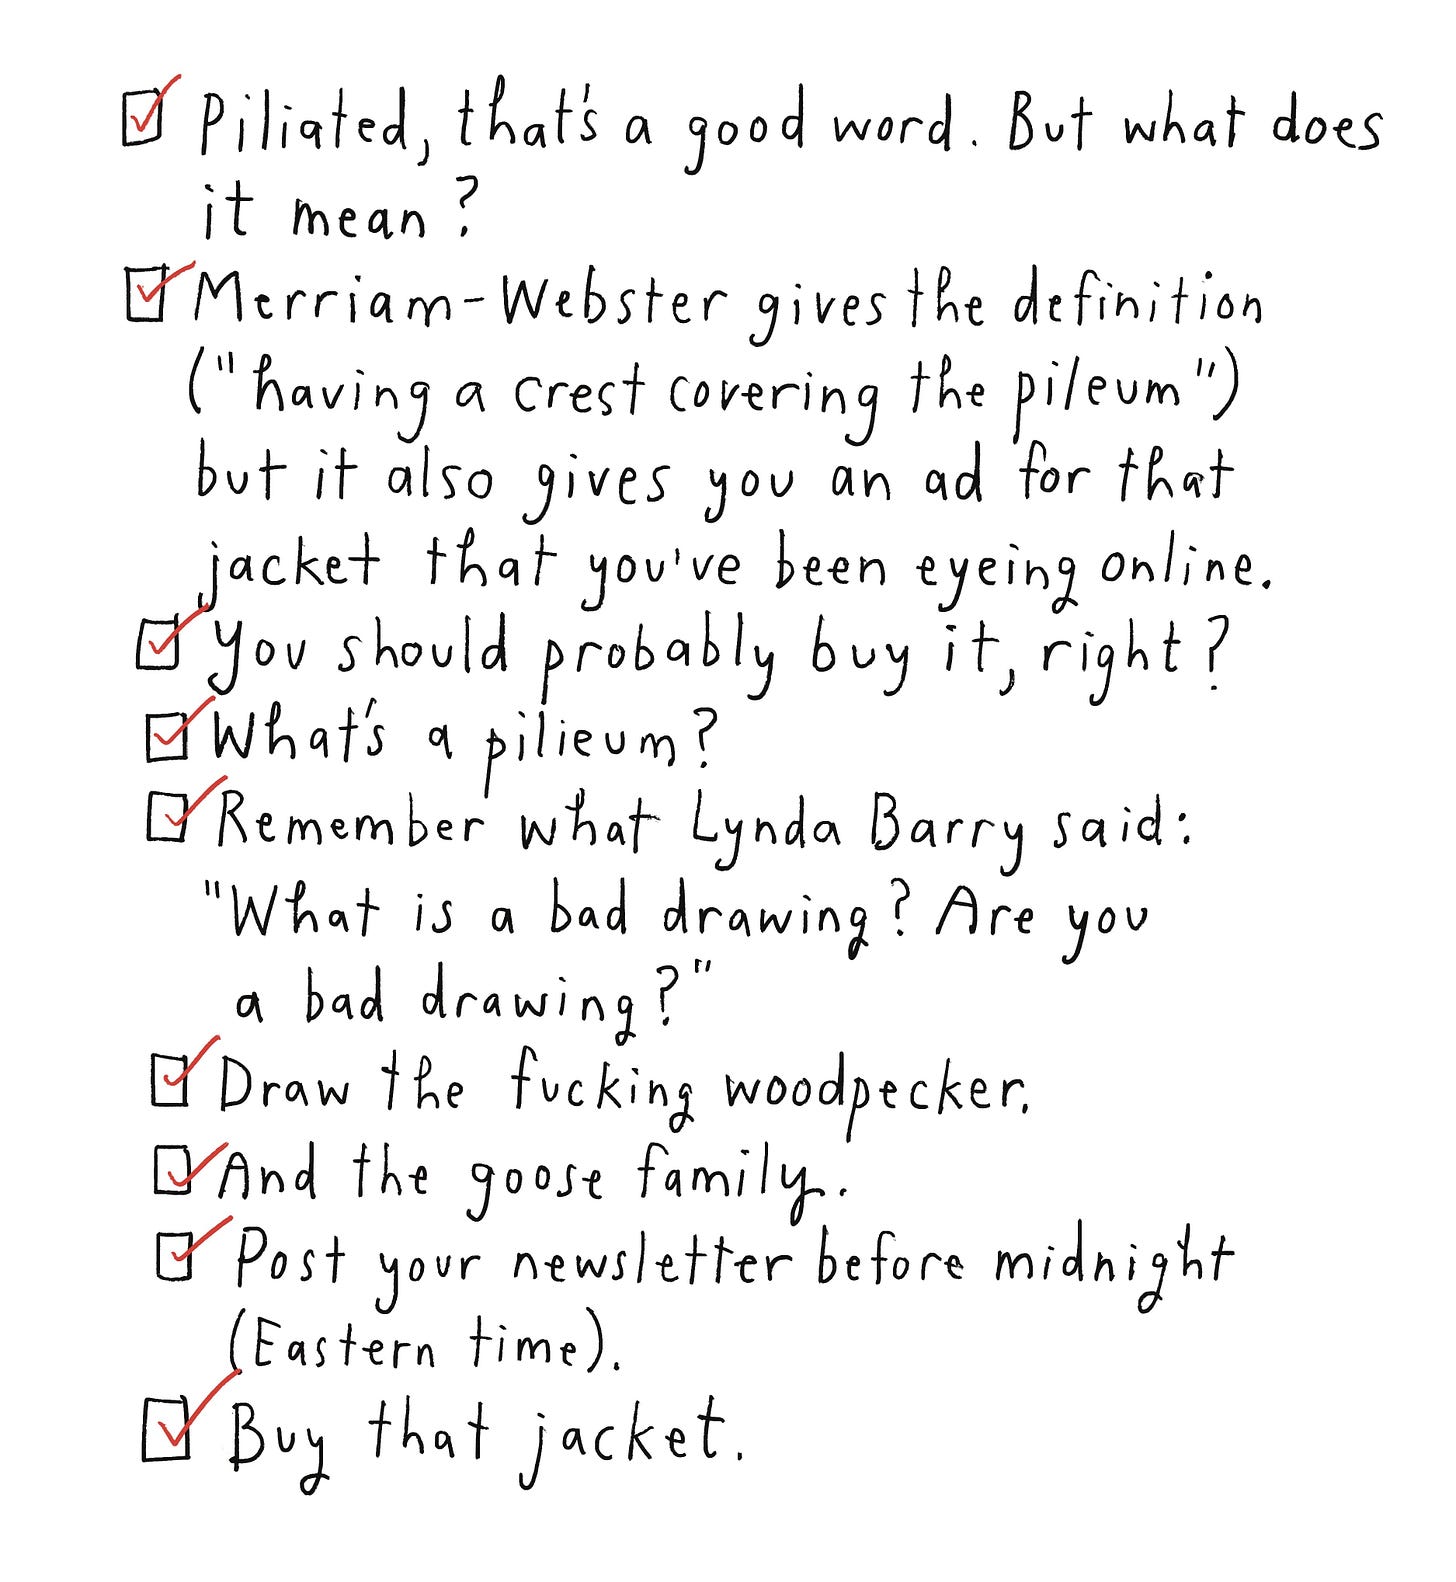 Piliated, that's a good word. But what does
it mean?
Merriam-Webster gives the definition
("having a crest covering the pileum")
but it also gives you an ad for that
jacket that you've been eyeing online.
You should probably buy it, right?
What's a pilieum?
Remember what Lynda Barry said:
"What is a bad drawing? Are you
a bad drawing?"
Draw the fucking woodpecker.
And the goose family.
Post your newsletter before midnight
(Eastern time).
Buy that jacket.